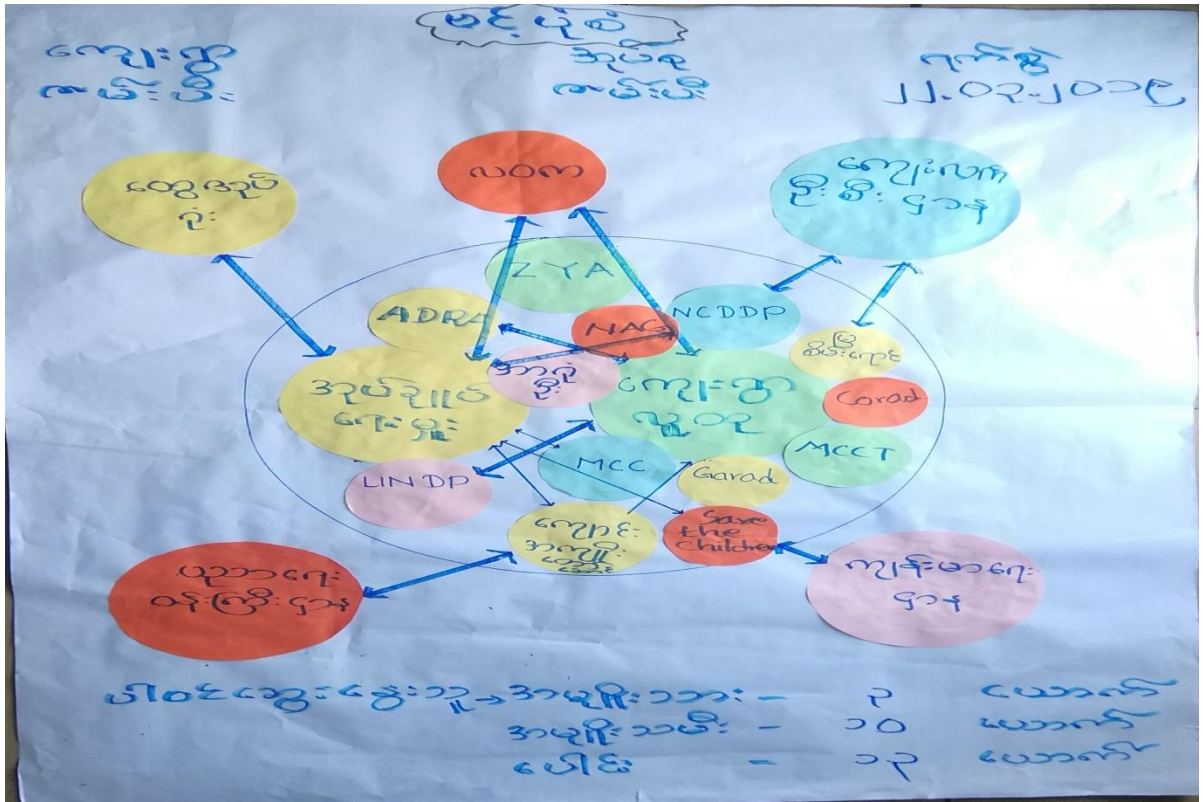 ဗင့်ပုံစံ
ကျေးရွာ
ဇမ်းပီး
အုပ်စု
ဇမ်းပီး
ရက်စွဲ
၂၂.၀၃.၂၀၁၉
ထွေအုပ်
ရုံး
လဝက
ကျေးလက်
ဦးစီးဌာန
ZYA
ADRA
NAG
NCDDP
မြ
စိမ်းရောင်
အုပ်ချုပ်
ရေးမှူး
အာရုံ
ဦး
ကျေးရွာ
လူထု
Corad
MCCT
UNDP
MCC
Garad
ကျောင်း
အကျိုး
ဆောင်
Save
the
Children
ပညာရေး
ဝန်ကြီးဌာန
ကျန်းမာရေး
ဌာန
ပါဝင်ဆွေးနွေးသူ→အမျိုးသား - ၃ ယောက်
အမျိုးသမီး - ၁၀ ယောက်
ပေါင်း - ၁၃ ယောက်